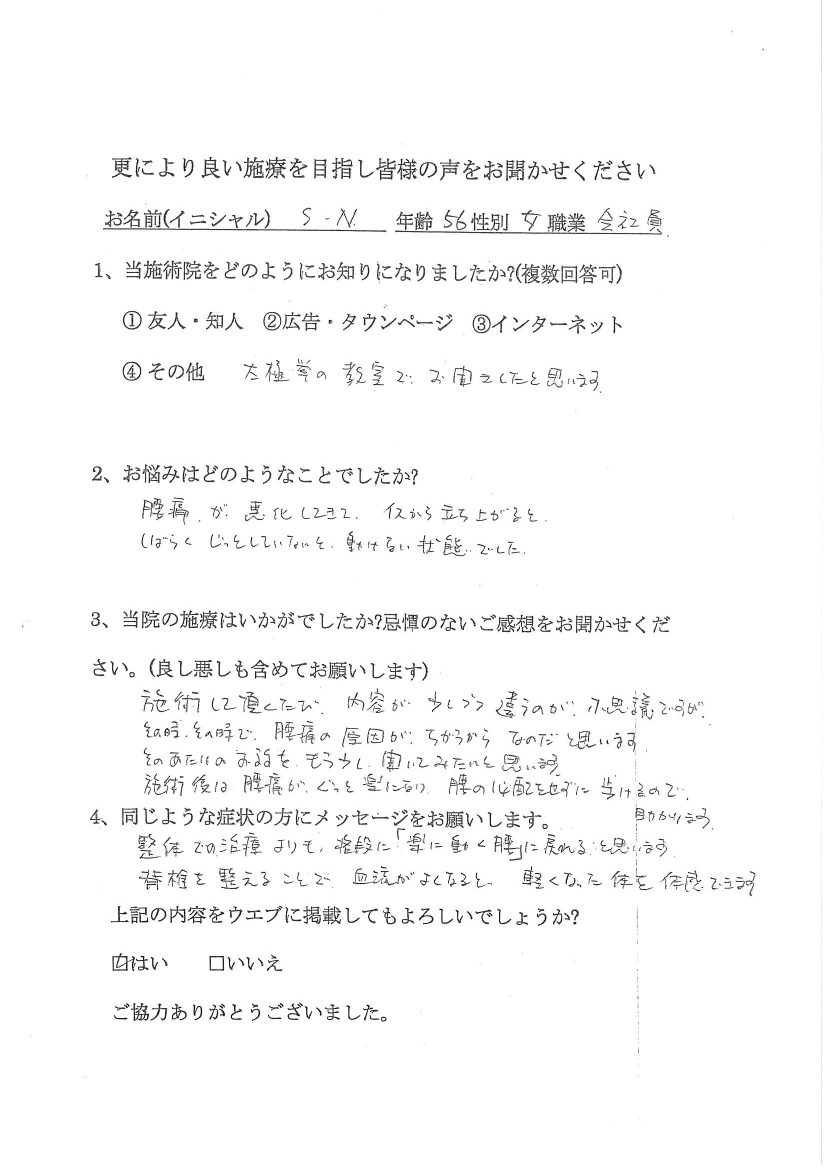 更により良い施療を目指し皆様の声をお聞かせください
お名前(イニシャル) S-N. 年齢 56 性別 女 職業 会社員
1、当施術院をどのようにお知りになりましたか?(複数回答可)
①友人・知人 ②広告・タウンページ ③インターネット
④その他 太極拳の教室で、お聞きしたと思います
2、お悩みはどのようなことでしたか?
腰痛が悪化してきて、イスから立ち上がると、
しばらくじっとしていないと、動けない状態でした。
3、当院の施療はいかがでしたか?忌憚のないご感想をお聞かせくだ
さい。(良し悪しも含めてお願いします)
施術して頂くたび、内容が少しづつ違うのが、不思議ですが、
その時、その時で、腰痛の原因が、ちがうから なのだと思います
そのあたりのお話を、もう少し、聞いてみたいと思います
施術後は、腰痛が、ぐっと楽になり、腰の心配をせずに歩けるので、
助かります。
4、同じような症状の方にメッセージをお願いします。
整体での治療よりも、格段に「楽に動く腰」に戻れると思います
背椎を整えることで、血流がよくなると、軽くなった体を体感できます
上記の内容をウエブに掲載してもよろしいでしょうか?
☑はい □いいえ
ご協力ありがとうございました。